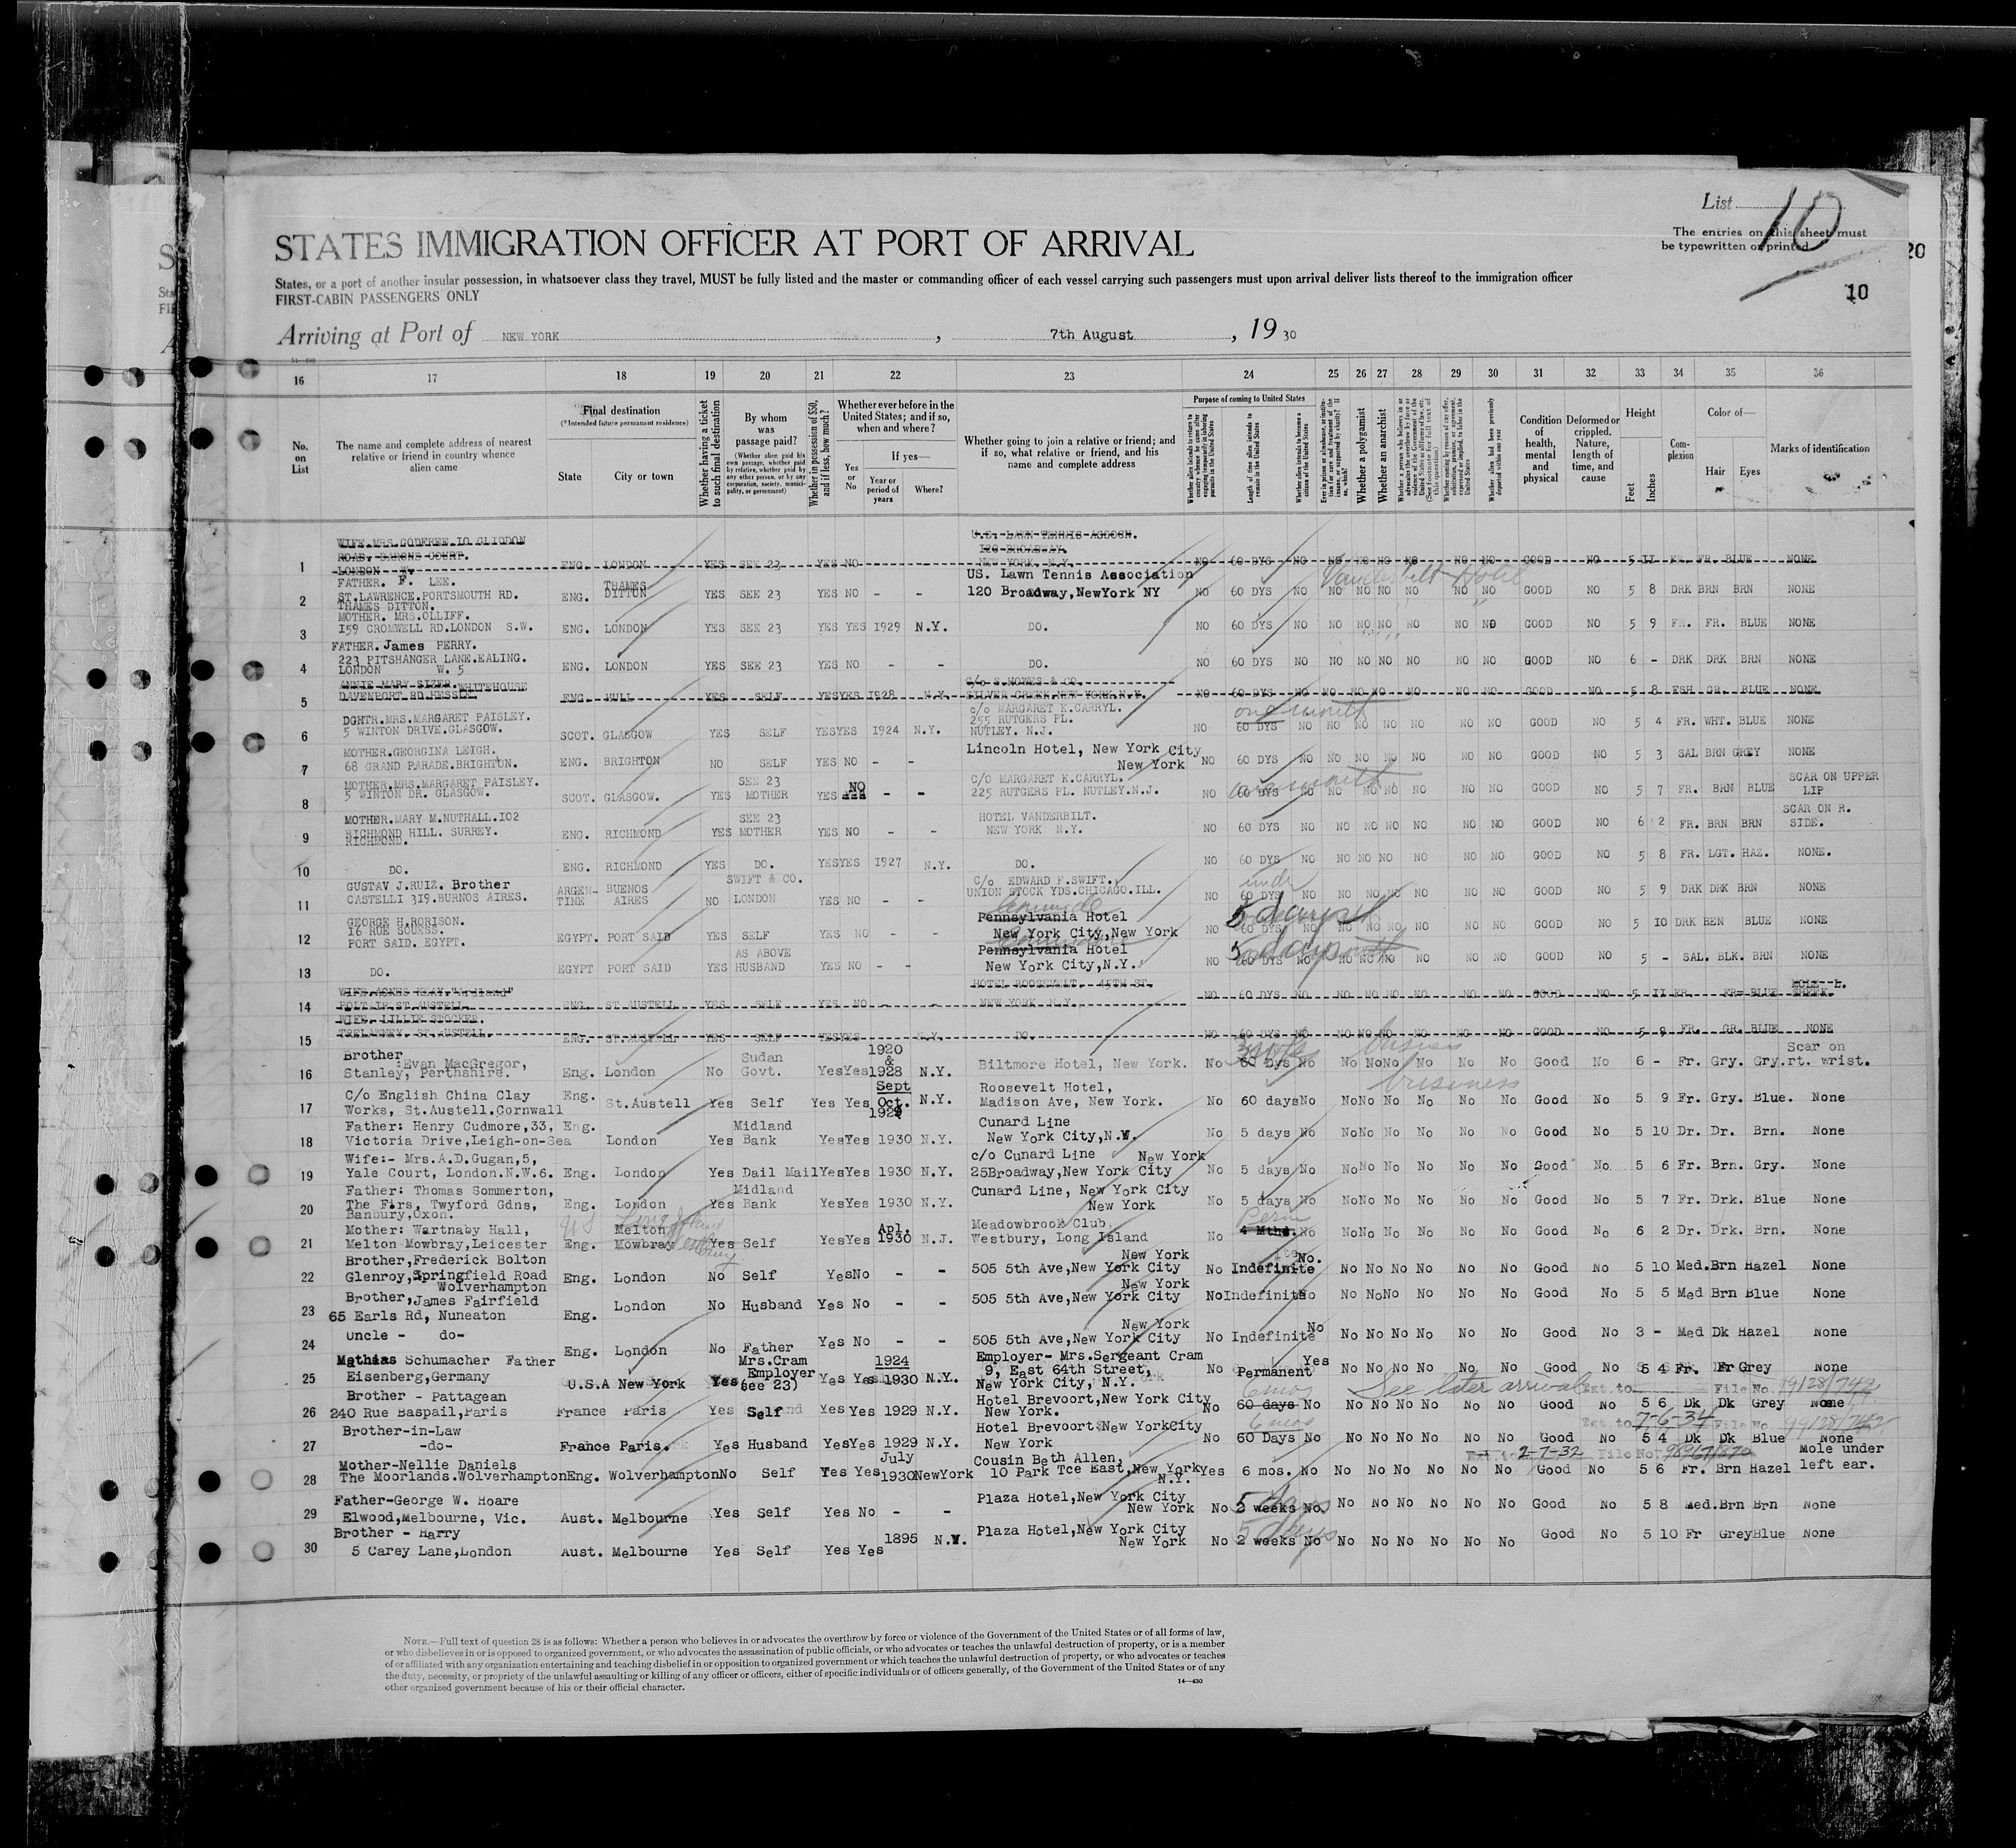 List 10
The entries on this sheet must
be typewritten or printed
20
10
STATES IMMIGRATION OFFICER AT PORT OF ARRIVAL
States, or a port of another insular possession, in whatsoever class they travel, MUST be fully listed and the master or commanding officer of each vessel carrying such passengers must upon arrival deliver lists thereof to the immigration officer
FIRST-CABIN PASSENGERS ONLY
Arriving at Port of NEW YORK, 7th August, 19 30
16 17 18 19 20 21 22 23 24 25 26 27 28 29 30 31 32 33 34 35 36
No. on List
The name and complete address of nearest relative or friend in country whence alien came
Final destination
(*Intended future permanent residence)
State
City or town
Whether having a ticket to such final destination
By whom was passage paid?
Whether in possession of $50, and if less, how much?
Whether ever before in the United States; and if so, when and where?
Yes or No
If yes—
Year or period of years
Where?
Whether going to join a relative or friend; and if so, what relative or friend, and his name and complete address
Purpose of coming to United States
Length of time alien intends to remain in the United States
Whether alien intends to become a citizen of the United States
Whether a polygamist
Whether an anarchist
Condition of health, mental and physical
Deformed or crippled. Nature, length of time, and cause
Height
Feet
Inches
Complexion
Color of—
Hair
Eyes
Marks of identification
1 WIFE.MRS.GODFREE.10 GLIDDON
ROAD. BARONS COURT.
LONDON W. ENG. LONDON YES SEE 23 YES NO U.S. LAWN TENNIS ASSOSN.
120 BROADWAY.
NEW YORK N.Y. NO 60 DYS NO NO NO NO NO NO NO GOOD NO 5 11 FR. FR. BLUE NONE
2 FATHER. F. LEE.
ST.LAWRENCE.PORTSMOUTH RD.
THAMES DITTON. ENG. THAMES DITTON YES SEE 23 YES NO - - US. Lawn Tennis Association
120 Broadway,NewYork NY NO 60 DYS NO NO NO NO NO NO NO GOOD NO 5 8 DRK BRN BRN NONE
Vanderbilt Hotel
3 MOTHER. MRS.OLLIFF.
159 CROMWELL RD.LONDON S.W. ENG. LONDON YES SEE 23 YES YES 1929 N.Y. DO. NO 60 DYS NO NO NO NO NO NO NO GOOD NO 5 9 FR. FR. BLUE NONE
4 FATHER.James PERRY.
223 PITSHANGER LANE.EALING.
LONDON W. 5 ENG. LONDON YES SEE 23 YES NO - - DO. NO 60 DYS NO NO NO NO NO NO NO GOOD NO 6 - DRK DRK BRN NONE
5 ANNIE MARY SIZER.WHITEHOUSE
DAVENPORT RD.HESSLE. ENG. HULL YES SELF YES YES 1928 N.Y. C/o S.HOWES & CO.
SILVER CREEK.NEW YORK.N.Y. NO 60 DYS NO NO NO NO NO NO NO GOOD NO 5 8 FSH GR. BLUE NONE
6 DGHTR.MRS.MARGARET PAISLEY.
5 WINTON DRIVE.GLASGOW. SCOT. GLASGOW YES SELF YES YES 1924 N.Y. c/o MARGARET K.CARRYL.
255 RUTGERS PL.
NUTLEY. N.J. NO one month 60 DYS NO NO NO NO NO NO NO GOOD NO 5 4 FR. WHT. BLUE NONE
7 MOTHER.GEORGINA LEIGH.
68 GRAND PARADE.BRIGHTON. ENG. BRIGHTON NO SELF YES NO - - Lincoln Hotel, New York City
New York NO 60 DYS NO NO NO NO NO NO NO GOOD NO 5 3 SAL BRN GREY NONE
8 MOTHER.MRS.MARGARET PAISLEY.
5 WINTON DR. GLASGOW. SCOT. GLASGOW. YES SEE 23 MOTHER YES NO - - C/O MARGARET K.CARRYL.
225 RUTGERS PL. NUTLEY.N.J. NO one month 60 DYS NO NO NO NO NO NO NO GOOD NO 5 7 FR. BRN BLUE SCAR ON UPPER LIP
9 MOTHER.MARY M.NUTHALL.102
RICHMOND HILL. SURREY.
RICHMOND. ENG. RICHMOND YES SEE 23 MOTHER YES NO - - HOTEL VANDERBILT.
NEW YORK N.Y. NO 60 DYS NO NO NO NO NO NO NO GOOD NO 6 2 FR. BRN BRN SCAR ON R. SIDE.
10 DO. ENG. RICHMOND YES DO. YES YES 1927 N.Y. DO. NO 60 DYS NO NO NO NO NO NO NO GOOD NO 5 8 FR. LGT. HAZ. NONE.
11 GUSTAV J.RUIZ. Brother
CASTELLI 319.BURNOS AIRES. ARGENTINE BUENOS AIRES NO SWIFT & CO. LONDON YES NO - - C/o EDWARD F.SWIFT.
UNION STOCK YDS.CHICAGO.ILL. NO under 60 DYS NO NO NO NO NO NO NO GOOD NO 5 9 DRK DRK BRN NONE
12 GEORGE H.RORISON.
16 RUE SOUESS.
PORT SAID. EGYPT. EGYPT. PORT SAID YES SELF YES NO - - Pennsylvania Hotel
New York City,New York NO 5 days 60 DYS NO NO NO NO NO NO NO GOOD NO 5 10 DRK BEN BLUE NONE
13 DO. EGYPT PORT SAID YES AS ABOVE HUSBAND YES NO - - Pennsylvania Hotel
New York City,N.Y. NO 5 days 60 DYS NO NO NO NO NO NO NO GOOD NO 5 - SAL. BLK. BRN NONE
14 WIFE.AGNES KLAY."Ardland"
ST.AUSTELL. ENG. ST.AUSTELL YES SELF YES NO - - HOTEL ROOSEVELT. 45TH ST.
NEW YORK N.Y. NO 60 DYS NO NO NO NO NO NO NO GOOD NO 5 11 FR. FR. BLUE MOLE L. CHEEK.
15 WIFE. LILLIE STOCKER.
TRELAWNEY. ST.AUSTELL. ENG. ST.AUSTELL YES SELF YES YES N.Y. DO. NO 60 DYS NO NO NO NO NO NO NO GOOD NO 5 9 FR. GR. BLUE NONE
16 Brother
:Evan MacGregor,
Stanley, Perthshire. Eng. London No Sudan Govt. Yes Yes 1920 & 1928 N.Y. Biltmore Hotel, New York. No 60 Dys No No No No No No No Good No 6 - Fr. Gry. Gry. Scar on rt. wrist.
business
17 C/o English China Clay
Works, St.Austell.Cornwall Eng. St.Austell Yes Self Yes Yes Sept Oct. 1929 N.Y. Roosevelt Hotel,
Madison Ave, New York. No 60 days No No No No No No No Good No 5 9 Fr. Gry. Blue. None
business
18 Father: Henry Cudmore,33,
Victoria Drive,Leigh-on-Sea Eng. London Yes Midland Bank Yes Yes 1930 N.Y. Cunard Line
New York City,N.Y. No 5 days No No No No No No No Good No 5 10 Dr. Dr. Brn. None
19 Wife:- Mrs.A.D.Gugan,5,
Yale Court, London.N.W.6. Eng. London Yes Dail Mail Yes Yes 1930 N.Y. c/o Cunard Line New York
25Broadway,New York City No 5 days No No No No No No No Good No 5 6 Fr. Brn. Gry. None
20 Father: Thomas Sommerton,
The Firs, Twyford Gdns,
Banbury,Oxon. Eng. London Yes Midland Bank Yes Yes 1930 N.Y. Cunard Line, New York City
New York No 5 days No No No No No No No Good No 5 7 Fr. Drk. Blue None
21 Mother: Wartnaby Hall,
Melton Mowbray,Leicester Eng. Melton Mowbray US Long Island Westbury Yes Self Yes Yes Apl. 1930 N.J. Meadowbrook Club,
Westbury, Long Island No Perm 4 Mths. No No No No No No No Good No 6 2 Dr. Drk. Brn. None
22 Brother,Frederick Bolton
Glenroy,Springfield Road
Wolverhampton Eng. London No Self Yes No - - New York
505 5th Ave,New York City No Indefinite No. No No No No No No Good No 5 10 Med. Brn Hazel None
23 Brother,James Fairfield
65 Earls Rd, Nuneaton Eng. London No Husband Yes No - - New York
505 5th Ave,New York City No Indefinite No No No No No No No Good No 5 5 Med Brn Blue None
24 Uncle - do- Eng. London No Father Yes No - - New York
505 5th Ave,New York City No Indefinite No No No No No No No Good No 3 - Med Dk Hazel None
25 Mathias Schumacher Father
Eisenberg,Germany U.S.A New York Yes Mrs.Cram Employer (see 23) Yes Yes 1924 1930 N.Y. Employer- Mrs.Sergeant Cram
9, East 64th Street,
New York City, N.Y. No Permanent Yes No No No No No No Good No 5 4 Fr. Fr Grey None
26 Brother - Pattagean
240 Rue Baspail,Paris France Paris Yes Self Yes Yes 1929 N.Y. Hotel Brevoort,New York City
New York. No 6 mos 60 days No No No No No No No Good No 5 6 Dk Dk Grey None
See later arrival Ext. to File No. 99128/742
27 Brother-in-Law
-do- France Paris. Yes Husband Yes Yes 1929 N.Y. Hotel Brevoort New York City
New York No 6 mos 60 Days No No No No No No No Good No 5 4 Dk Dk Blue None
Ext. to 7-6-34 File No. 99128/742
28 Mother-Nellie Daniels
The Moorlands.Wolverhampton Eng. Wolverhampton No Self Yes Yes July 1930 NewYork Cousin Beth Allen,
10 Park Tce East,New York
N.Y. Yes 6 mos. No No No No No No No Good No 5 6 Fr. Brn Hazel Mole under left ear.
Ext. to 2-7-32 File No. 98967/870
29 Father-George W. Hoare
Elwood,Melbourne, Vic. Aust. Melbourne Yes Self Yes No - - Plaza Hotel,New York City
New York No 5 days 2 weeks No No No No No No No Good No 5 8 Med. Brn Brn None
30 Brother - Harry
5 Carey Lane,London Aust. Melbourne Yes Self Yes Yes 1895 N.Y. Plaza Hotel,New York City
New York No 5 days 2 weeks No No No No No No No Good No 5 10 Fr Grey Blue None
NOTE.—Full text of question 28 is as follows: Whether a person who believes in or advocates the overthrow by force or violence of the Government of the United States or of all forms of law,
or who disbelieves in or is opposed to organized government, or who advocates the assassination of public officials, or who advocates or teaches the unlawful destruction of property, or is a member
of or affiliated with any organization entertaining and teaching disbelief in or opposition to organized government or which teaches the unlawful destruction of property, or who advocates or teaches
the duty, necessity, or propriety of the unlawful assaulting or killing of any officer or officers, either of specific individuals or of officers generally, of the Government of the United States or of any
other organized government because of his or their official character.
14—430